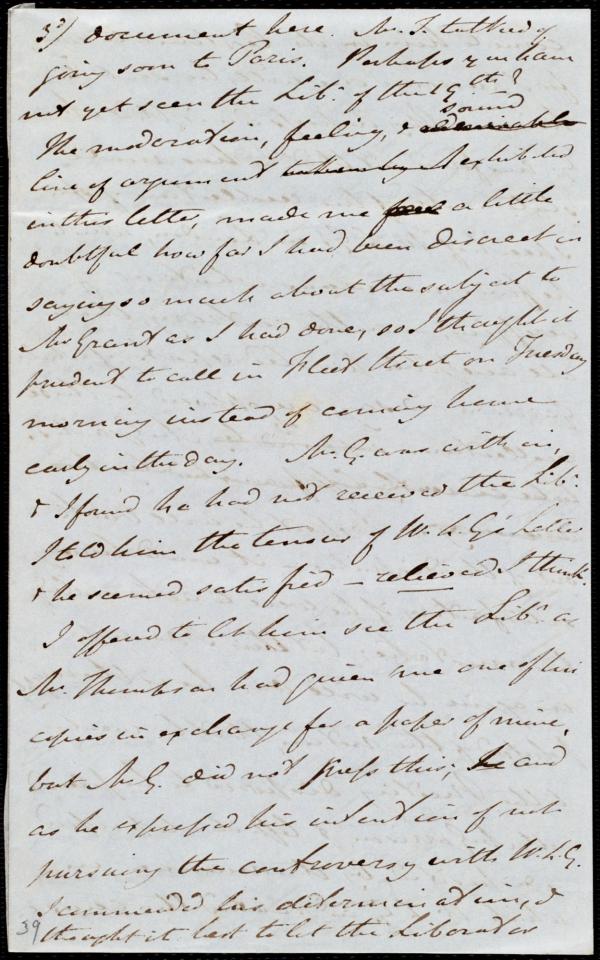 3d) document here. Mr. T. talked of
going soon to Paris. Perhaps you have
not yet seen the Libr. of the 19th?
The moderation, feeling, & sound
line of argument exhibited
in this letter, made me a little
doubtful how far I had been discreet in
saying so much about the subject to
Mr Grant as I had done, so I thought it
prudent to call in Fleet Street on Tuesday
morning instead of coming home
early in the day. Mr. G. was within,
& I found he had not received the Libr.
I told him the tenour of W.L.G's Letter
& he seemed satisfied – relieved I think.
I offered to let him see the Libr. as
Mr. Thompson had given me one of his
copies in exchange for a paper of mine,
but Mr G. did not press this; and
as he expressed his intention of not
pursuing the controversy with W.L.G.
I commended his determination, &
thought it best to let the Liberator
39